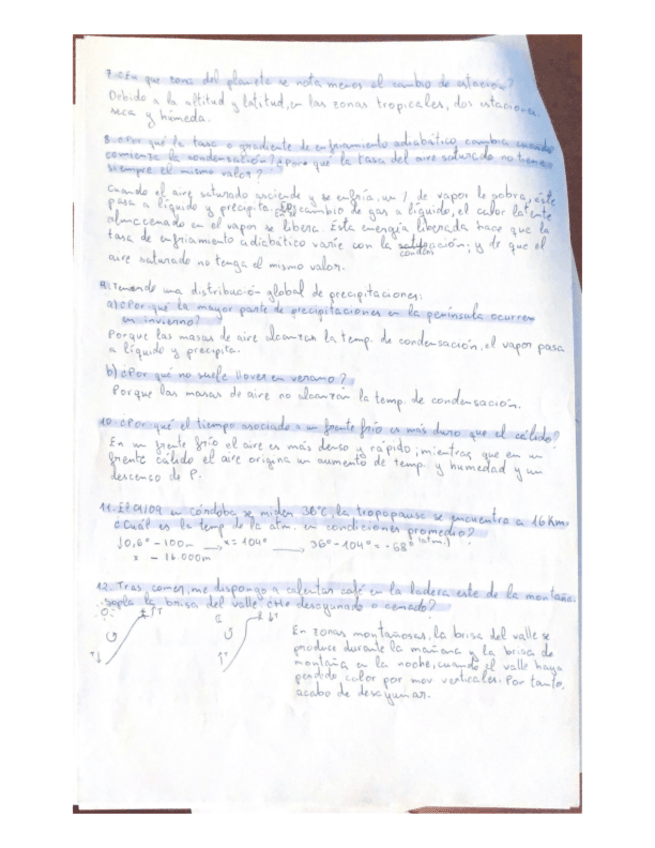 7. ¿En que zona del planeta se nota menos el cambio de estación?
Debido a la altitud y latitud, en las zonas tropicales, dos estaciones,
seca y húmeda.
8. ¿Por qué la tasa o gradiente de enfriamiento adiabático cambia cuando
comienza la condensación? ¿Por qué la tasa del aire saturado no tiene
siempre el mismo valor?
Cuando el aire saturado asciende y se enfría, un % de vapor le sobra, éste
pasa a líquido y precipita. En el cambio de gas a líquido, el calor latente
almacenado en el vapor se libera. Esta energía liberada hace que la
tasa de enfriamiento adiabático varíe con la condensación, y de que el
aire saturado no tenga el mismo valor.
9. Teniendo una distribución global de precipitaciones:
a) ¿Por qué la mayor parte de precipitaciones en la península ocurren
en invierno?
Porque las masas de aire alcanzan la temp. de condensación, el vapor pasa
a líquido y precipita.
b) ¿Por qué no suele llover en verano?
Porque las masas de aire no alcanzan la temp. de condensación.
10. ¿Por qué el tiempo asociado a un frente frío es más duro que el cálido?
En un frente frío el aire es más denso y rápido; mientras que en un
frente cálido el aire origina un aumento de temp. y humedad y un
descenso de P.
11. El 01/09 en Córdoba se miden 36°C, la tropopausa se encuentra a 16 Km.
¿Cuál es la temp de la atm. en condiciones promedio?
↓0,6° - 100m → x = 104° → 36° - 104° = -68° (atm.)
x - 16.000m
12. Tras comer, me dispongo a calentar café en la ladera este de la montaña.
Sopla la brisa del valle. ¿He desayunado o cenado?
↑T
↓T
T↓
↑T
En zonas montañosas, la brisa del valle se
produce durante la mañana y la brisa de
montaña en la noche, cuando el valle haya
perdido calor por mov verticales. Por tanto,
acabo de desayunar.